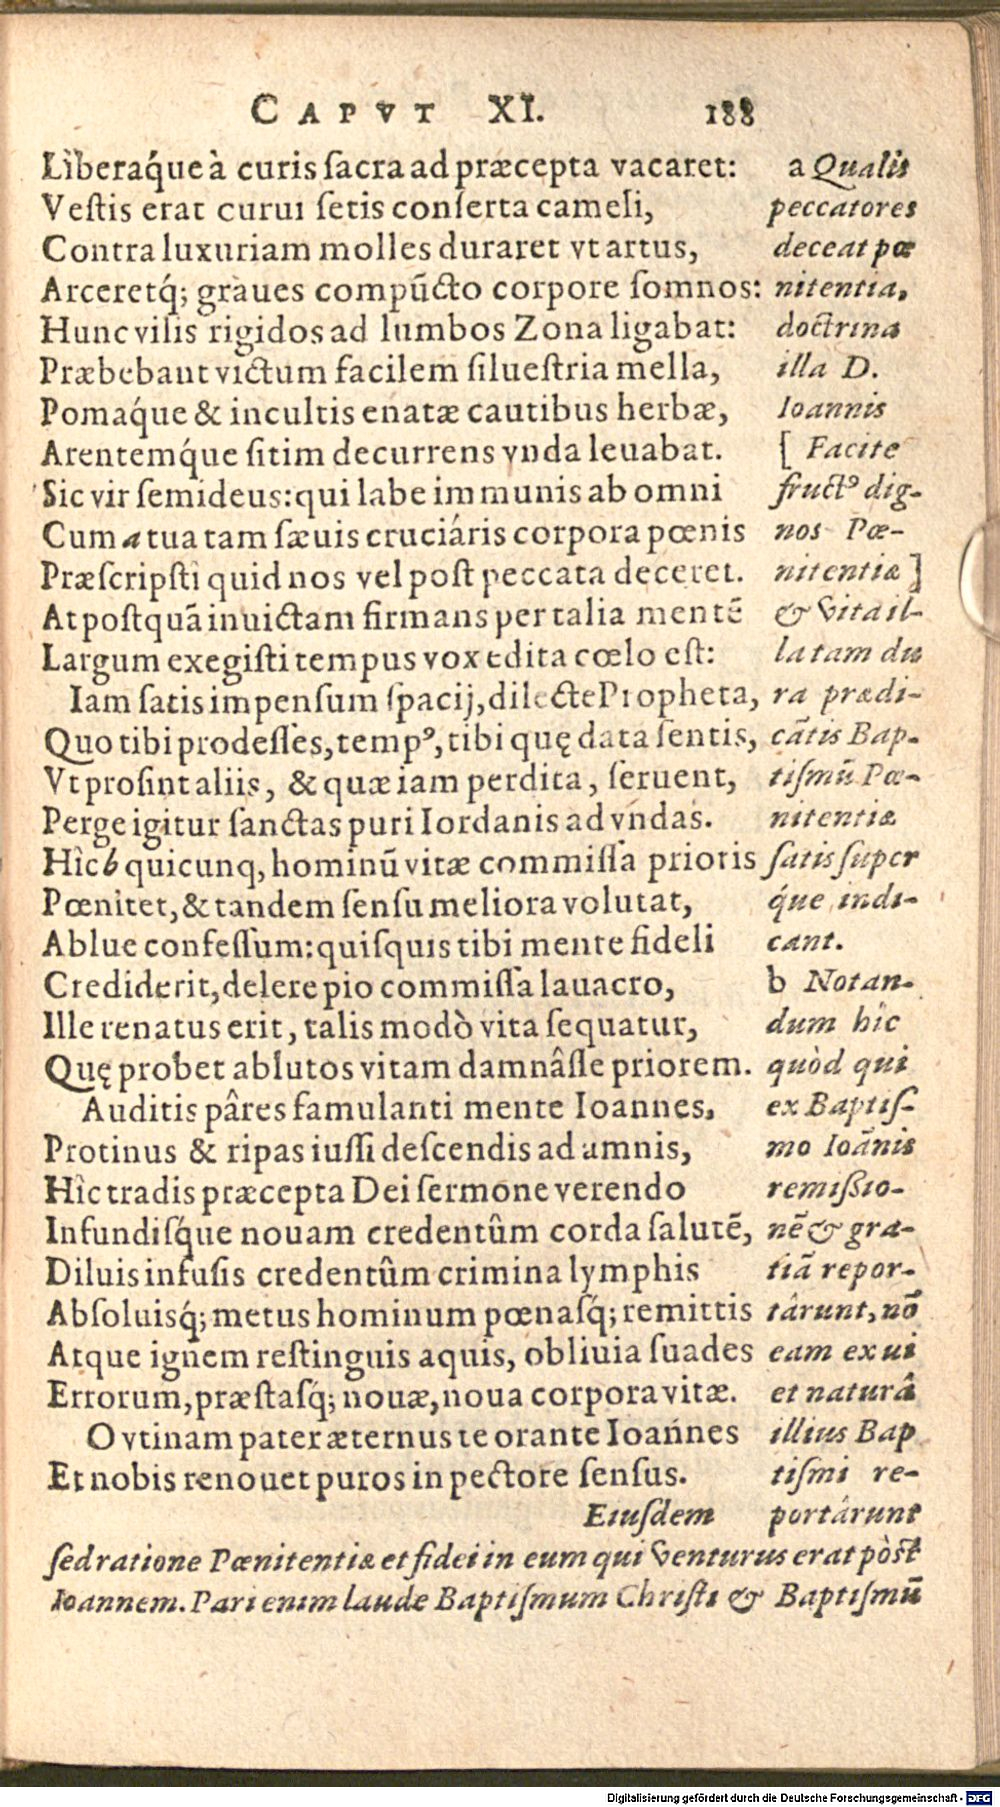 CAPVT XI. 188
Liberaq́ue à curis sacra ad præcepta vacaret:
Vestis erat curui setis conserta cameli,
Contra luxuriam molles duraret vt artus,
Arceretq́; graues compũcto corpore somnos:
Hunc vilis rigidos ad lumbos Zona ligabat:
Præbebant victum facilem siluestria mella,
Pomaq́ue & incultis enatæ cautibus herbæ,
Arentemq́ue sitim decurrens vnda leuabat.
Sic vir semideus: qui labe immunis ab omni
Cum a tua tam sæuis cruciáris corpora pœnis
Præscripsti quid nos vel post peccata deceret.
At postquã inuictam firmans per talia mentẽ
Largum exegisti tempus vox edita cœlo est:
Iam satis impensum spacij, dilecte Propheta,
Quo tibi prodesses, tempꝰ, tibi quę data sentis,
Vt prosint aliis, & quæ iam perdita, seruent,
Perge igitur sanctas puri Iordanis ad vndas.
Hîc b quicunq, hominũ vitæ commissa prioris
Pœnitet, & tandem sensu meliora volutat,
Ablue confessum: quisquis tibi mente fideli
Crediderit, delere pio commissa lauacro,
Ille renatus erit, talis modò vita sequatur,
Quę probet ablutos vitam damnâsse priorem.
Auditis pâres famulanti mente Ioannes,
Protinus & ripas iussi descendis ad amnis,
Hîc tradis præcepta Dei sermone verendo
Infundisq́ue nouam credentûm corda salutẽ,
Diluis infusis credentûm crimina lymphis
Absoluisq́; metus hominum pœnasq́; remittis
Atque ignem restinguis aquis, obliuia suades
Errorum, præstasq́; nouæ, noua corpora vitæ.
O vtinam pater æternus te orante Ioannes
Et nobis renouet puros in pectore sensus.
Eiusdem
a Qualis
peccatores
deceat pœ
nitentia,
doctrina
illa D.
Ioannis
[ Facite
fructꝰ dig-
nos Pœ-
nitentiæ ]
& vita il-
la tam du
ra prædi-
cãtis Bap-
tismũ Pœ-
nitentiæ
satis super
q́ue indi-
cant.
b Notan-
dum hîc
quòd qui
ex Baptis-
mo Ioãnis
remissio-
nẽ & gra-
tiã repor-
târunt, nõ
eam ex ui
et naturâ
illius Bap
tismi re-
portârunt
sed ratione Pœnitentiæ et fidei in eum qui venturus erat pòst
Ioannem. Pari enim laude Baptismum Christi & Baptismũ
Digitalisierung gefördert durch die Deutsche Forschungsgemeinschaft - DFG